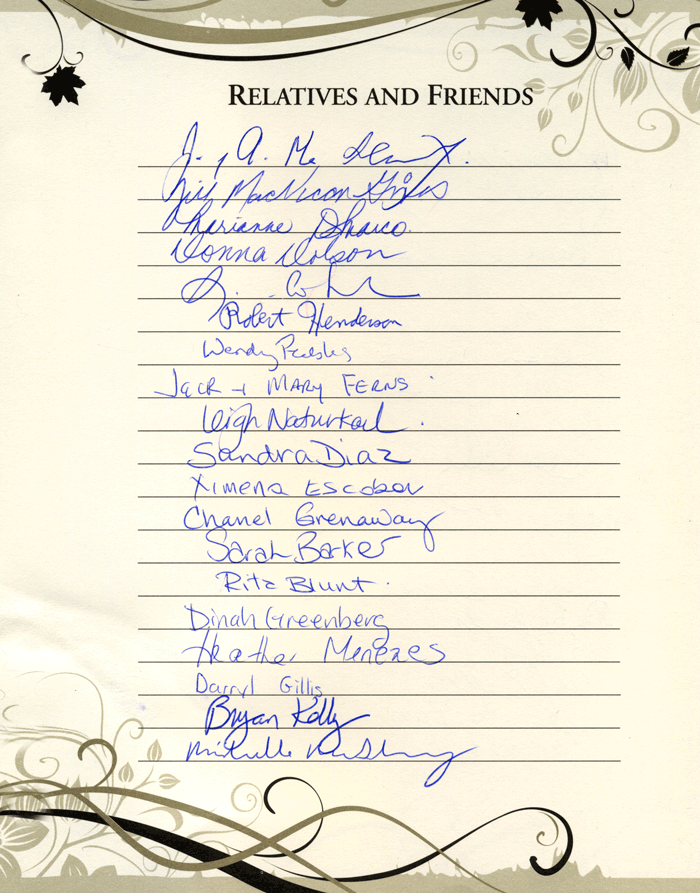 RELATIVES AND FRIENDS
J. A. Mc
Jill MacVicar
Marianne
Donna Dolson
Robert Henderson
Wendy
Jack + MARY FERNS
Leigh Naturkach
Sandra Diaz
Ximena Escobar
Chanel Grenaway
Sarah Barker
Rita Blunt.
Dinah Greenberg
Heather Menezes
Darryl Gillis
Bryan Kelly
Michelle